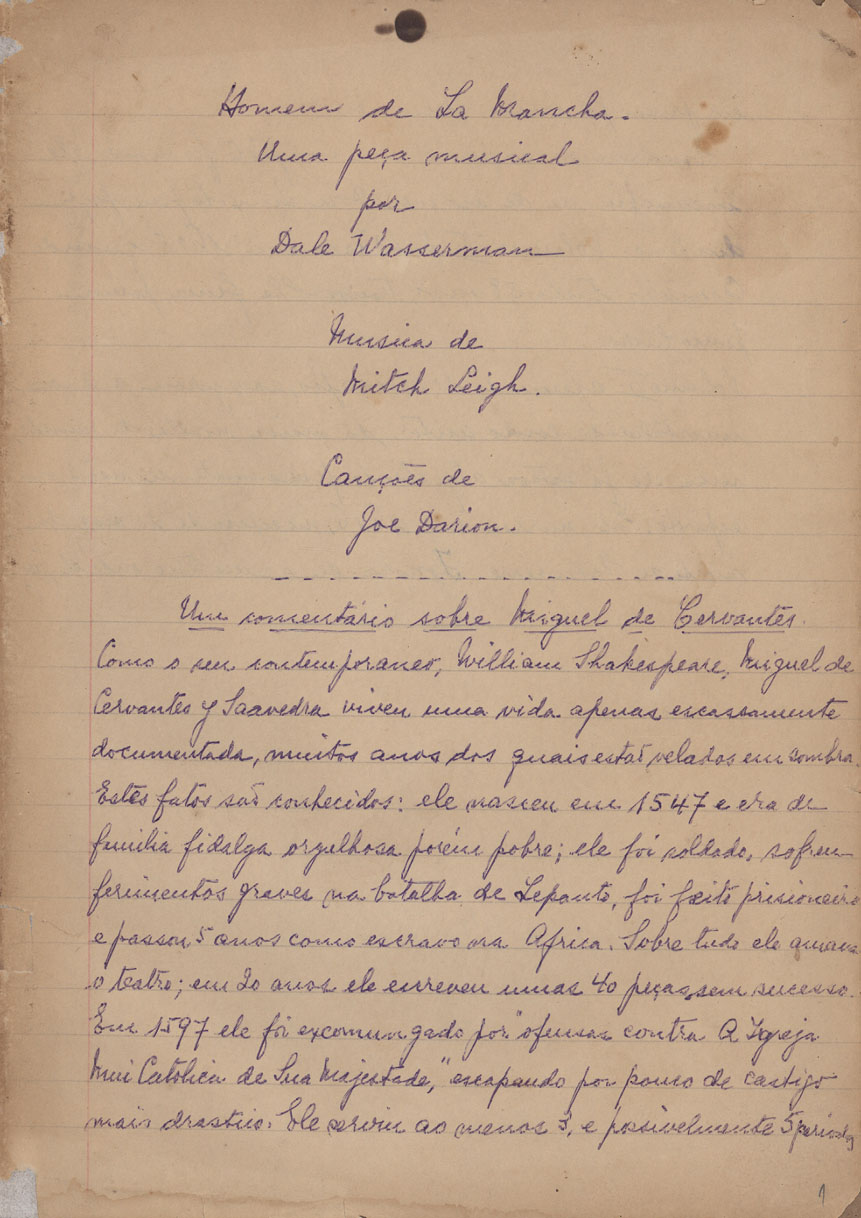 Homem de La Mancha.
Uma peça musical
por
Dale Wasserman
Musica de
Mitch Leigh.
Canções de
Joe Darion.
Um comentário sobre Miguel de Cervantes.
Como o seu contemporaneo, William Shakespeare, Miguel de
Cervantes y Saavedra viveu uma vida apenas escassamente
documentada, muitos anos dos quais estão velados em sombra.
Estes fatos são conhecidos: ele nasceu em 1547 e era de
familia fidalga orgulhosa porém pobre; ele foi soldado, sofreu
ferimentos graves na batalha de Lepanto, foi feito prisioneiro
e passou 5 anos como escravo na Africa. Sobre tudo ele amava
o teatro; em 20 anos ele escreveu umas 40 peças, sem sucesso.
Em 1597 ele foi excomungado por "ofensas contra A Igreja
Mui Catolica de Sua Majestade," escapando por pouco de castigo
mais drastico. Ele serviu ao menos 3, e possivelmente 5 periodos
1